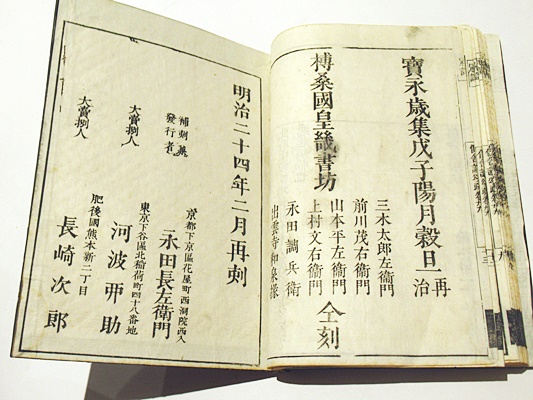 寶永歳集戊子陽月穀旦再治
三木太郎左衞門
前川茂右衞門
榑桑國皇畿書坊
山本平左衞門
上村文右衞門
永田調兵衛
出雲寺和泉掾
仝刻
明治二十四年二月再刻
補刻兼
發行者
京都下京區花屋町西洞院西入
永田長左衞門
大賣捌人
東京下谷區北稲荷町四十八番地
河波帀助
大賣捌人
肥後國熊本新二丁目
長崎次郎